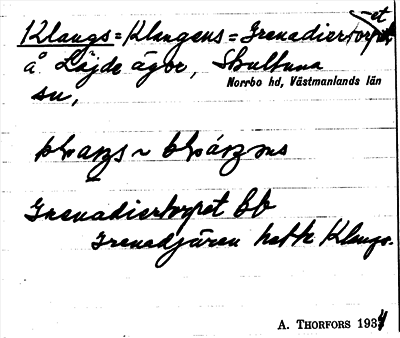 -et
Klangs = Klangens = Grenadiertorpet,
å Löjde ägor, Skultuna
Norrbo hd, Västmanlands län
sn,
Grenadiertorpet bb
Grenadjären hette Klangs.
A. THORFORS 1934